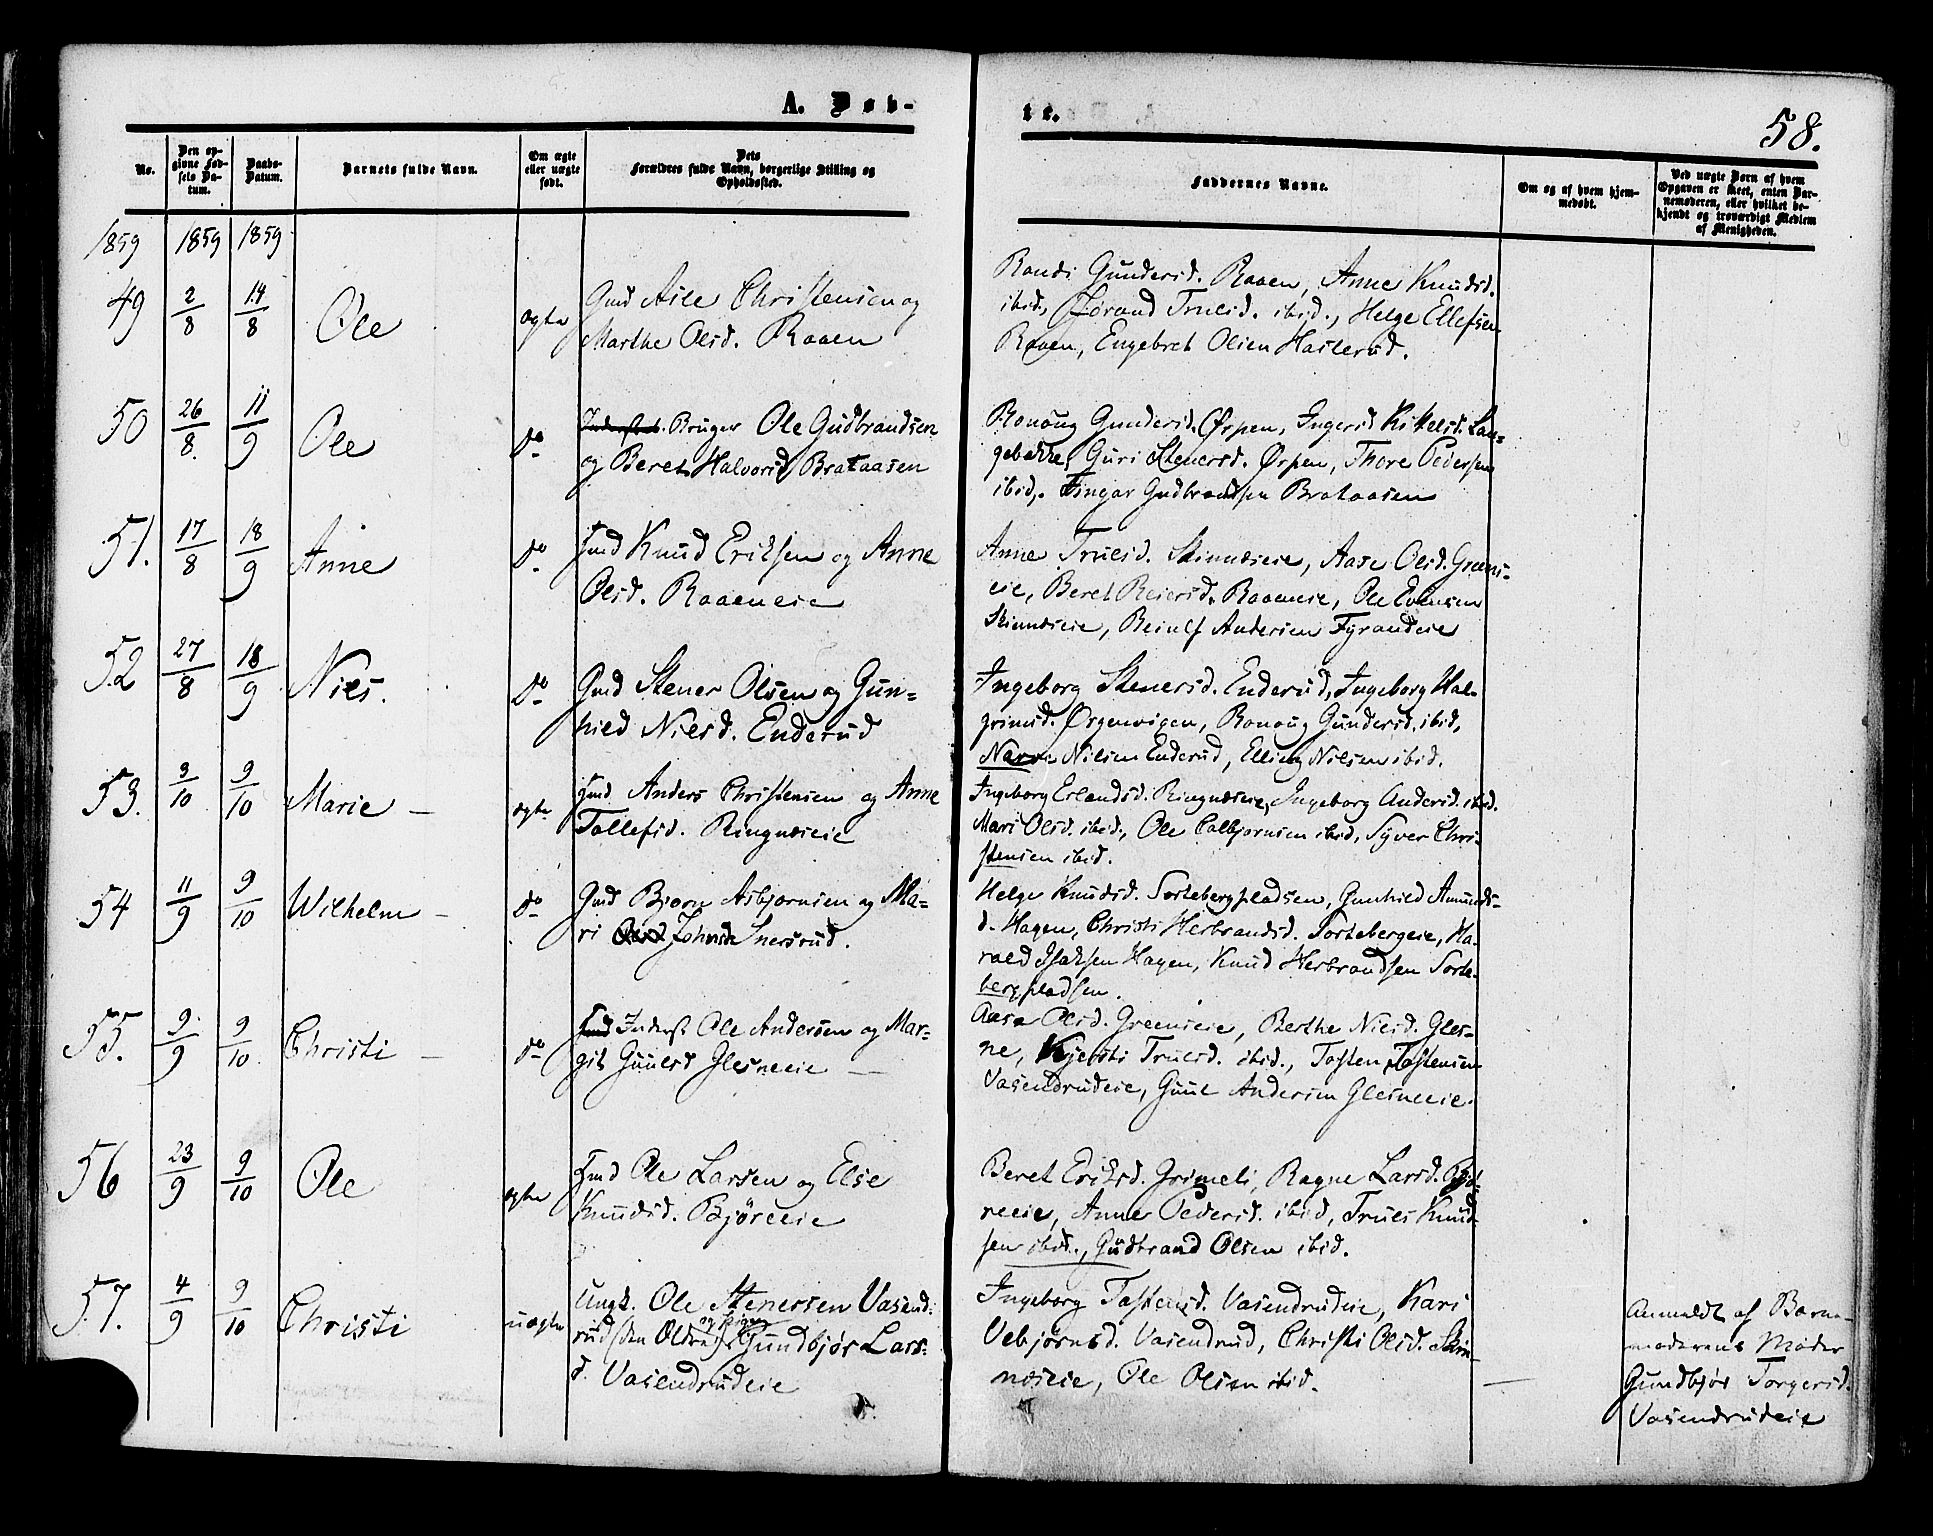 A. Døb-
te.
58.
No.
Den op-
givne Fød-
sels Da-
tum.
Daabs-
Datum.
Barnets fulde Navn.
Om ægte
eller uægte
født.
Dets
Forældres fulde Navn, borgerlige Stilling og
Opholdssted.
Faddernes Navne.
Om og af hvem hjem-
medøbt.
Ved uægte Børn af hvem
Opgaven er skeet, enten Bar-
nemoderen, eller hvilket be-
kjendt og troværdigt Medlem
af Menigheden.
1859 1859 1859
49 2/8 14/8 Ole ægte
Gmd Asle Christensen og
Marthe Olsd. Raaen
Randi Gundersd. Raaen, Anne Knudsd.
ibid, Jørand Trulsd. ibid., Helge Ellefsen
Raaen, Engebret Olsen Haslerud.
50 26/8 11/9 Ole do
Bruger Ole Gudbrandsen
og Beret Halvorsd Brataasen
Ronoug Gundersd. Ørpen, Ingerid Kittelsd. Lan-
gebakke, Guri Stenersd. Ørpen, Thore Pedersen
ibid,. Fingar Gudbrandsen Brataasen
51. 17/8 18/9 Anne do
Hmd Knud Eriksen og Anne
Olsd. Raaeneie
Anne Trulsd. Skinnæseie, Aase Olsd. Greens-
eie, Beret Reiersd. Raaeneie, Ole Evensen
Skinnæseie, Beinlf Andersen Fyrandeie
52 27/8 18/9 Niels. do
Gmd Stener Olsen og Gun-
hild Nielsd. Enderud
Ingeborg Stenersd. Enderud, Ingeborg Hal-
grimsd. Ørgenvigen, Ronoug Gundersd. ibid,
Narve Nilsen Enderud, Elling Nilsen ibid.
53. 3/10 9/10 Marie — ægte
Hmd. Anders Christensen og Anne
Tollefsd. Ringnæseie
Ingeborg Erlandsd. Ringnæseie, Ingeborg Andersd. ibid.
Mari Olsd. ibid., Ole Colbjørnsen ibid, Syver Chri-
stensen ibid.
54 11/9 9/10 Wilhelm — do
Gmd Bjørn Asbjørnsen og Ma-
ri Johnsd Snersrud.
Helge Knudsd. Sortebergpladsen, Gunhild Amunds-
d. Hagen, Christi Herbrandsd. Sortebergeie, Ha-
rald Isaksen Hagen, Knud Herbrandsen Sorte-
bergpladsen.
55. 9/9 9/10 Christi — do
Hmd Inderst Ole Andersen og Mar-
git Guulsd Glesneeie —
Aase Olsd. Greenseie, Berthe Nielsd. Gles-
ne, Kjersti Trulsd. ibid., Tosten Tostensen
Vasendrudeie, Guul Andersen Glesneeie.
56 23/9 9/10 Ole ægte
Hmd Ole Larsen og Else
Knudsd. Bjøreeie
Beret Eriksd. Grimeli, Ragne Larsd. Bjø-
reeie, Anne Pedersd. ibid, Truls Knud-
sen ibid., Gudbrand Olsen ibid.
57. 4/9 9/10 Christi uægte
Ungk. Ole Stenersen Vasend-
rud (den Oldre) og Pigen Gundbjør Lars-
d. Vasendrudeie
Ingeborg Tostensd. Vasendrudeie, Kari
Vebjørnsd. Vasendrud, Christi Olsd. Skin-
næseie, Ole Olsen ibid.
—
Anmeldt af Barne-
moderens Moder
Gundbjør Torgersd.
Vasendrudeie